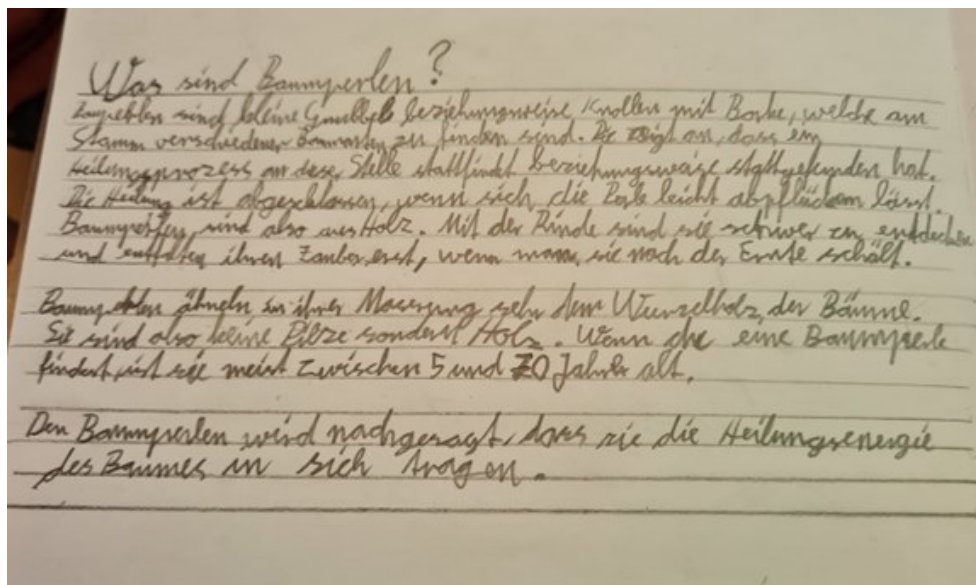 Was sind Baumperlen?
sind kleine Gnubbel beziehungsweise Knollen mit Borke, welche am
Stamm verschiedener Baumarten zu finden sind. Sie zeigt an, dass ein
Heilungsprozess an dieser Stelle stattfindet beziehungsweise stattgefunden hat.
Die Heilung ist abgeschlossen, wenn sich die Perle leicht abpflücken lässt.
Baumperlen sind also aus Holz. Mit der Rinde sind sie schwer zu entdecken
und entfalten ihren Zauber erst, wenn man sie nach der Ernte schält.
Baumperlen ähneln in ihrer Maserung sehr dem Wurzelholz der Bäume.
Sie sind also keine Pilze sondern Holz. Wenn du eine Baumperle
findest, ist sie meist zwischen 5 und 70 Jahre alt.
Den Baumperlen wird nachgesagt, dass sie die Heilungsenergie
des Baumes in sich tragen.